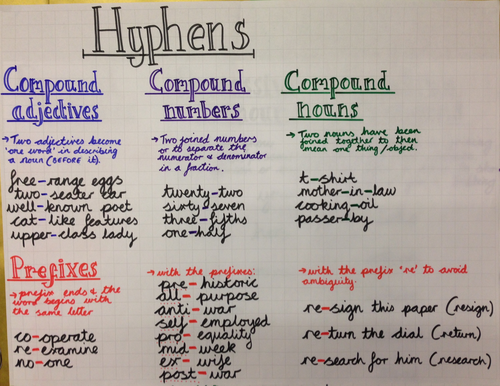 Hyphens
Compound
adjectives
→ Two adjectives become
'one word' in describing
a noun (BEFORE it).
free-range eggs
two-seater car
well-known poet
cat-like features
upper-class lady
Compound
numbers
→ Two joined numbers
or to separate the
numerator & denominator
in a fraction.
twenty-two
sixty-seven
three-fifths
one-half
Compound
nouns
→ Two nouns have been
joined together to then
mean 'one' thing/object.
t-shirt
mother-in-law
cooking-oil
passer-by
Prefixes
→ prefix ends & the
word begins with
the same letter
co-operate
re-examine
no-one
→ with the prefixes:
pre-historic
all-purpose
anti-war
self-employed
pro-equality
mid-week
ex-wife
post-war
→ with the prefix 're' to avoid
ambiguity.
re-sign this paper (resign)
re-turn the dial (return)
re-search for him (research)